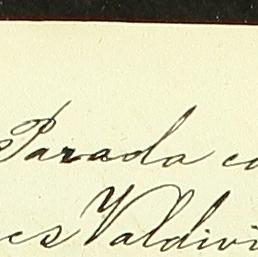 Parada co
es Valdivi